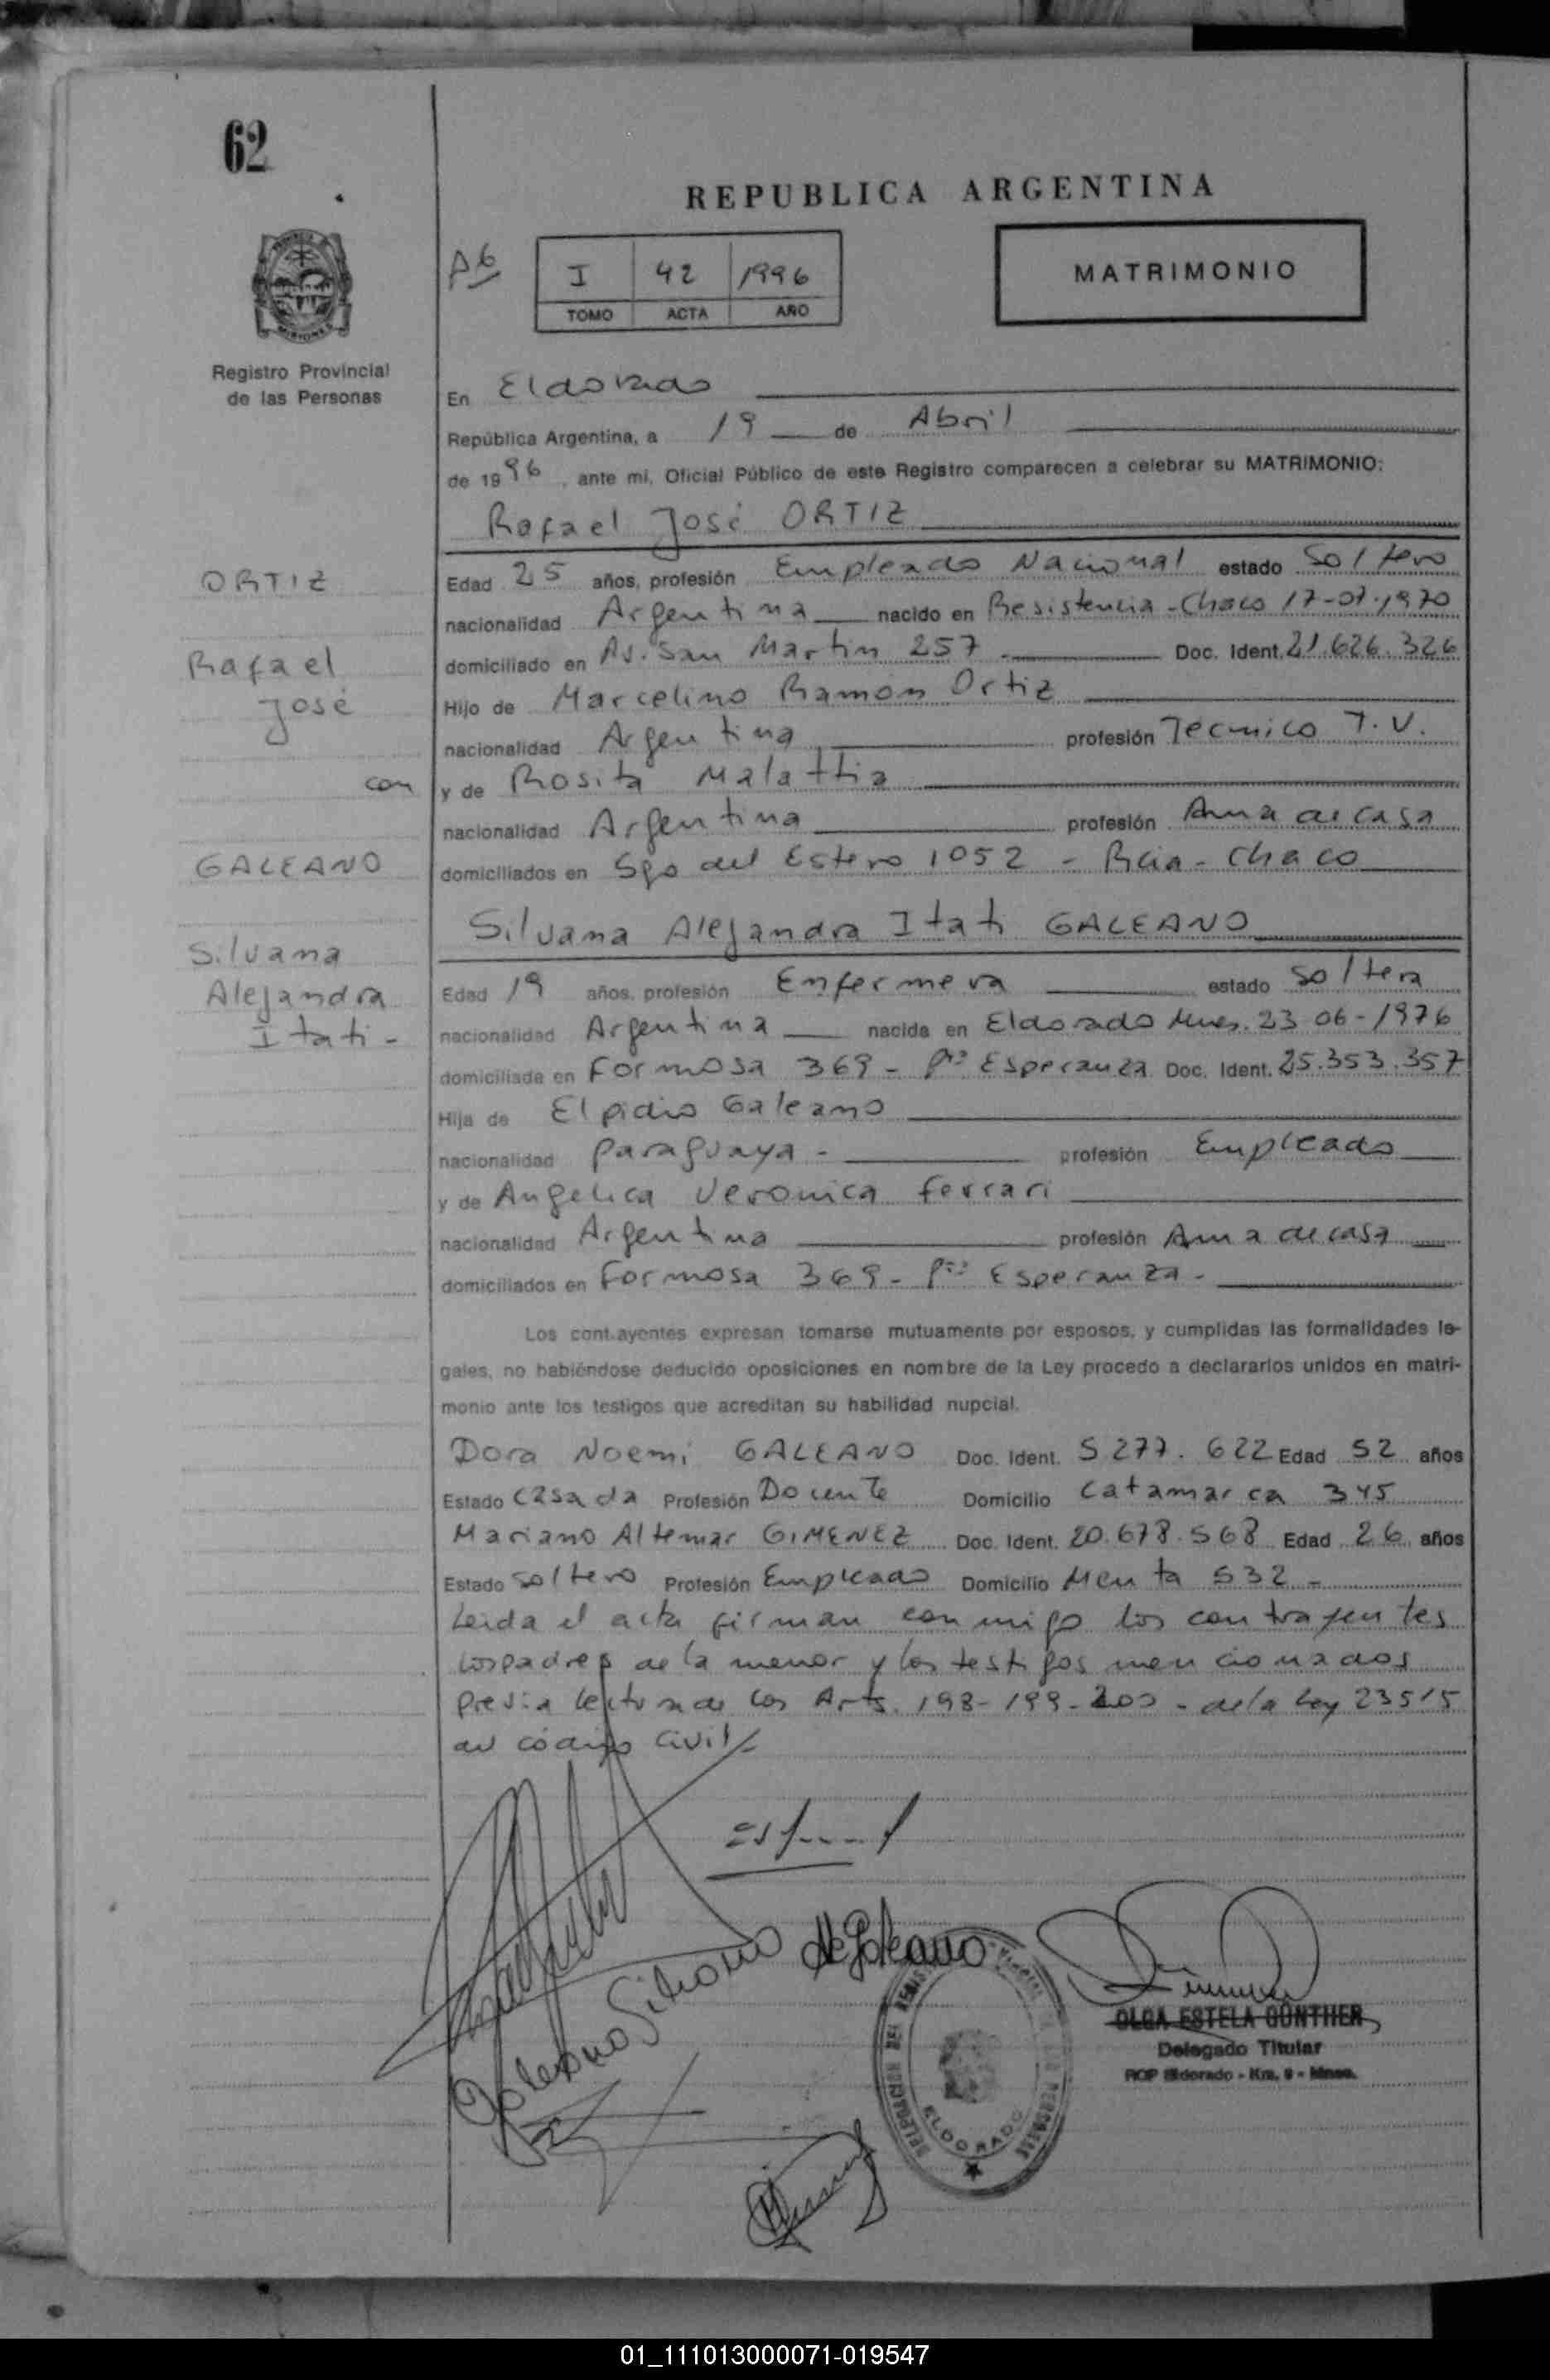 62
REPUBLICA ARGENTINA
A6
I 42 1996
TOMO ACTA AÑO
MATRIMONIO
Registro Provincial
de las Personas
En Eldorado
República Argentina, a 19 de Abril
de 1996, ante mi, Oficial Público de este Registro comparecen a celebrar su MATRIMONIO:
Rafael José ORTIZ
ORTIZ
Edad 25 años, profesión Empleado Nacional estado Soltero
nacionalidad Argentina nacido en Resistencia-Chaco 17-07-1970
Rafael
domiciliado en Av. San Martin 257 Doc. Ident. 21.626.326
José
Hijo de Marcelino Ramón Ortiz
nacionalidad Argentina profesión Tecnico T.V.
con
y de Rosita Malattia
nacionalidad Argentina profesión Ama de casa
GALEANO
domiciliados en Sgo del Estero 1052 - Rcia - Chaco
Silvana Alejandra Itati GALEANO
Silvana
Alejandra
Itati -
Edad 19 años, profesión Enfermera estado Soltera
nacionalidad Argentina nacida en Eldorado Mnes. 23-06-1976
domiciliada en Formosa 369 - Pto Esperanza Doc. Ident. 25.353.357
Hija de Elpidio Galeano
nacionalidad Paraguaya - profesión Empleado
y de Angelica Veronica Ferrari
nacionalidad Argentina profesión Ama de casa
domiciliados en Formosa 369 - Pto Esperanza -
Los contrayentes expresan tomarse mutuamente por esposos, y cumplidas las formalidades le-
gales, no habiéndose deducido oposiciones en nombre de la Ley procedo a declararlos unidos en matri-
monio ante los testigos que acreditan su habilidad nupcial.
Dora Noemi GALEANO Doc. Ident. 5 277.622 Edad 52 años
Estado Casada Profesión Docente Domicilio Catamarca 345
Mariano Altemar GIMENEZ Doc. Ident. 20.678.568 Edad 26 años
Estado Soltero Profesión Empleado Domicilio Menta 532 -
Leida el acta firman conmigo los contrayentes
los padres de la menor y los testigos mencionados
previa lectura de los Arts. 198-199-200 - de la Ley 23515
del código Civil
Galeano Silvana
de Galeano
ELDORADO
OLGA ESTELA GÜNTHER
Delegado Titular
RCP Eldorado - Km. 9 - Mnes.
01_111013000071-019547